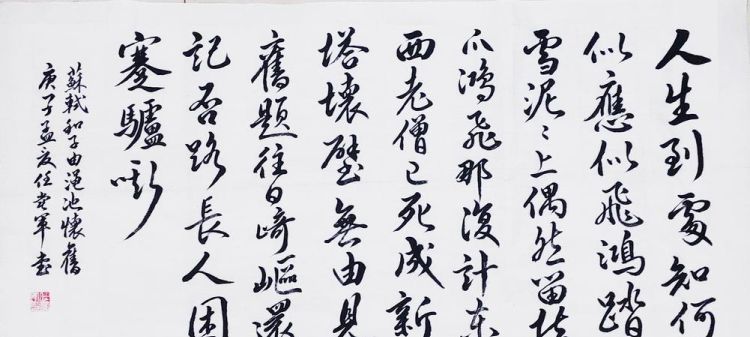 人生到處知何
似應似飛鴻踏
雪泥〻上偶然留指
爪鴻飛那復計東
西老僧已死成新
塔壞壁無由見
舊題往日崎嶇還
記否路長人困
蹇驢嘶
蘇軾和子由渑池懷舊
庚子孟夏任軍書